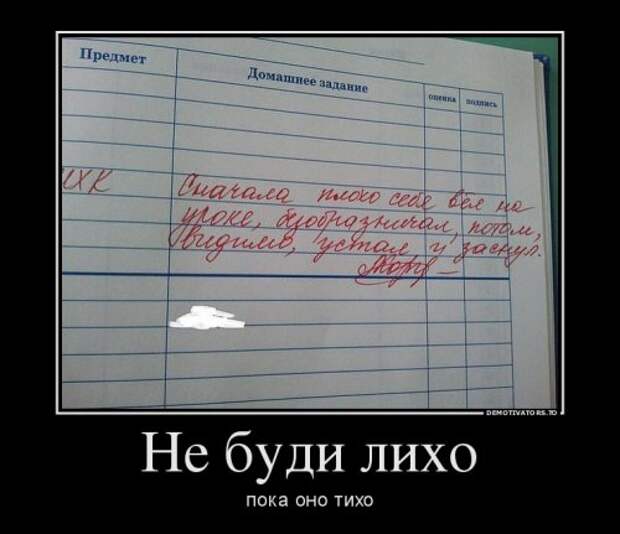 Предмет
Домашнее задание
оценка
подпись
МХК
Сначала плохо себе вёл на
уроке, безобразничал, потом,
видимо, устал и заснул.
DEMOTIVATORS.TO
Не буди лихо
пока оно тихо